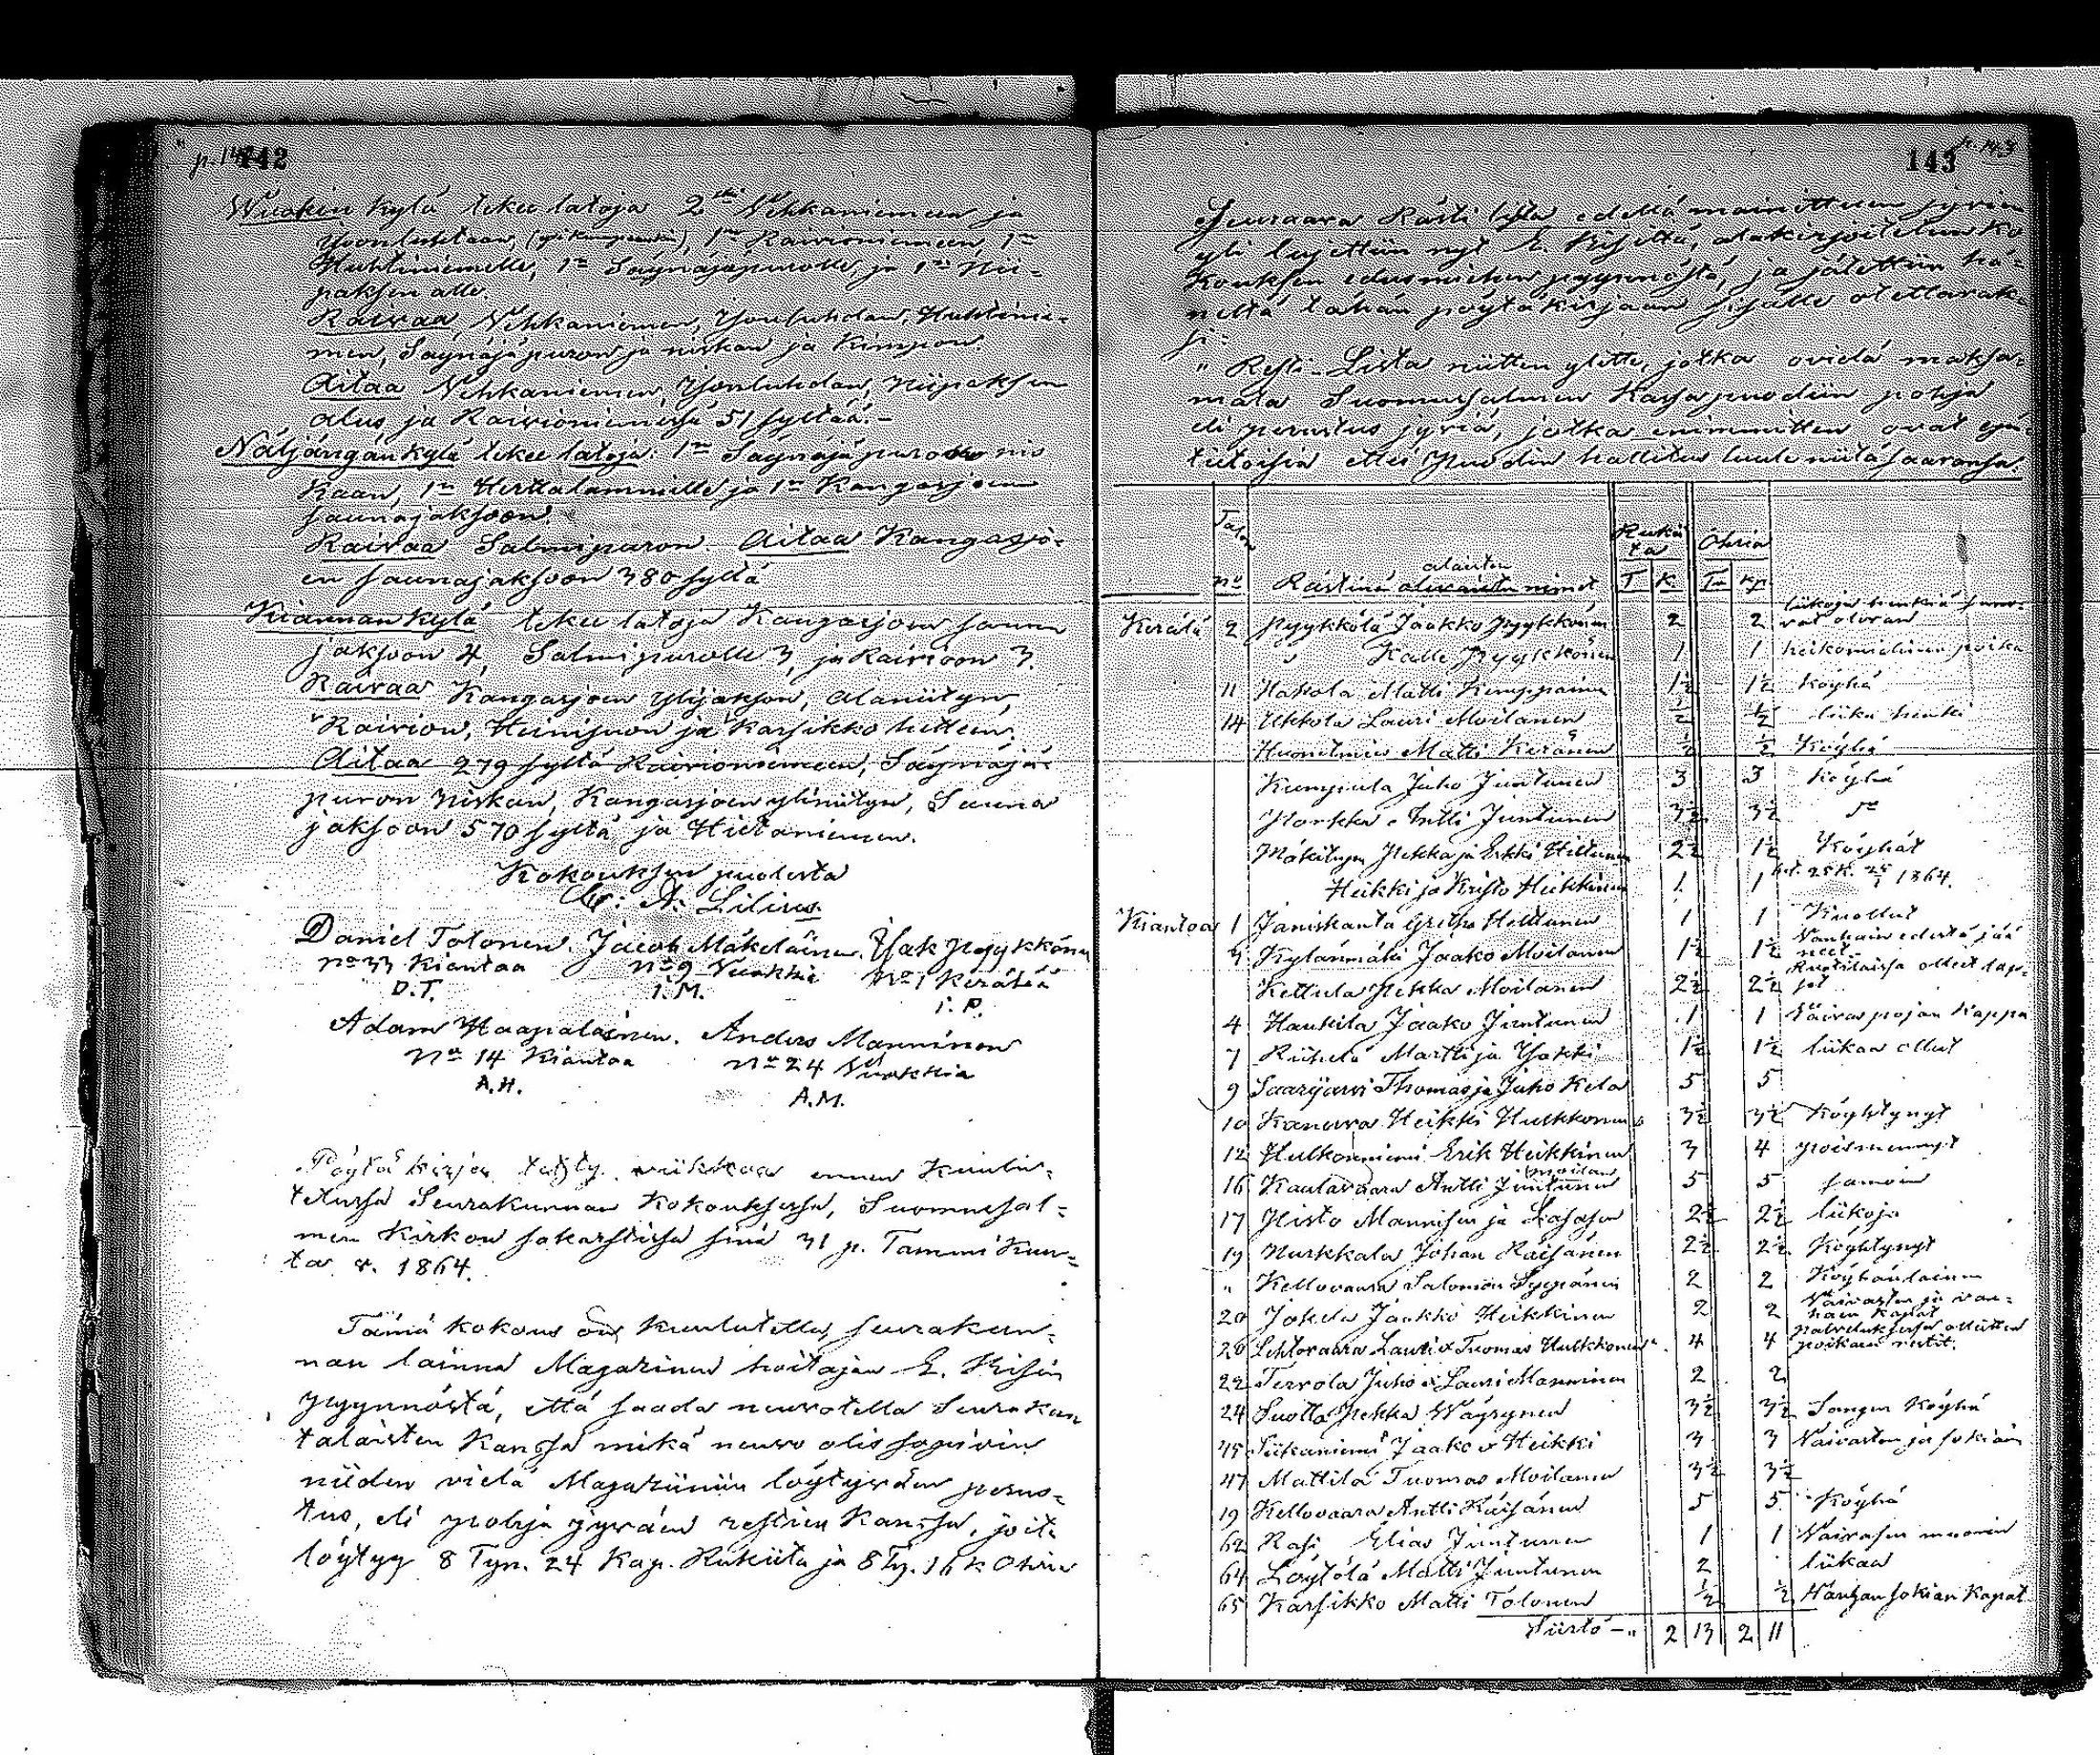 142
Wuokin kylä tekee latoja 2 Vehkaniemeen ja
Isoonluhtaan, 1 Rairioniemeen, 1
Huhtiniemelle, 1 Säynäjäpurolle, ja 1 Nii-
paksen alle.
Raivaa Vehkaniemen, Isonluhdan, Huhtinie-
men, Säynäjäpuron ja niskan ja Kimpon.
Aitaa Vehkaniemen, Isonluhdan, Niipaksen
alus ja Rairioniemessä 51 syltää.-
Näljängän kylä tekee latoja: 1 Säynäjäpuron nis
kaan, 1 Herttalammille ja 1 Kangasjoen
saunajaksoon.
Raivaa Salmipuron. Aitaa Kangasjo-
en saunajaksoon 380 syltä
Kiannan kylä tekee latoja Kangasjoen sauna
jaksoon 4, Salmipurolle 3, ja Rairioon 3.
Raivaa Kangasjoen ylijakson, alaniityn,
Rairion, Heinisuon ja Karsikko
Aitaa 279 syltä Rairioniemeen, Säynäjä-
puron niskan, Kangasjoen yliniityn, Sauna
jaksoon 570 syltä ja Hietaniemen.
Kokouksen puolesta
C: A: Lilius
Daniel Tolonen. Jacob Mäkeläinen. Isak Pyykkönen
No 33 Kiantaa No 9 Vuokkia No 1 Kerälää
D.T. I. M. I. P.
Adam Haapalainen. Anders Manninen
No 14 Kiantaa No 24 Vuokkia
A.H. A.M.
Pöytä kirja viikkoa ennen Kuulu-
tetussa Seurakunnan Kokouksessa, Suomussal-
men Kirkon sakastissa sinä 31 p. Tammi Kuu-
ta v. 1864.
Tämä kokous on kuulutettu seurakun-
nan laina Magasinin hoitajan E. Kisin
pyynnöstä, että saada neuvotella Seurakun
talaisten Kanssa mikä neuvo olis sopivin
niiden vielä Magasiiniin löytyväin perus-
tus, eli pohja jyväin restien Kanssa, joita
löytyy 8 Tyn. 24 Kap. Rukiita ja 8 Ty. 16 k Ohria
143
Seuraava Rästi lista edellä mainittuin jyvien
yli lujettiin nyt E. Kisiltä, alakirjoitetun ko
kouksen edusmiehen pyynnöstä, ja jätettiin hä-
neltä tähän pöytäkirjaan sisälle otettavak-
si:
" Resti-Lista niitten ylitte, jotka ovielä maksa-
mata Suomussalmen Kassapuodiin pohja
eli perustus jyviä, jotka enimmitten ovat epä-
tietoisia ettei Puodin hallitus luule niitä saavansa.
Talon Rukii ta Ohria
no Rästinä alaisten nimet T K Tn Kp.
Kerälä 2 Pyykkölä Jaakko Pyykkönen 2 2 liikoja henkiä
" Kalle Pyykkönen 1 1 heikomielinen poika
11 Hakola Matti Kemppainen 1½ 1½ Köyhä
14 Ukkola Lauri Moilanen ½ ½ liika henki
Huonilmies Matti Keränen ½ ½ Köyhä
Kumpula Juho Juntunen 3 3 Köyhä
Porkka Antti Juntunen 3½ 3½ So
Mäkitupa Pekka ja Erkki Hiltunen 2½ 1½ Köyhät
Heikki ja Kristo Heikkinen 1 1 25 k. 1864.
Kiantaa 1 Jäniskanta Hiltunen 1 1 Kuollut
3 Kylänmäki Jaako Moilanen 1½ 1½ Vanhain edestä jää
neet
Kettula Pekka Moilanen 2½ 2½ Ruotilaisia olleet lap-
set
4 Haukila Jaako Juntunen 1 1 Kappa
7 Riihelä Martti ja Isakki 1½ 1½ liikaa ollut
9 Saarijärvi Thomas ja Juho Kela 5 5
10 Kanerva Heikki Hulkkonen 3½ 3½ Köyhtynyt
12 Hulkonniemi Erik Heikkinen 3 4 poismennyt
16 Kaulavaara Antti Juntunen 5 5 samoin
17 Histo Mannisen ja Sasasen 2½ 2½ liikoja
19 Nurkkala Johan Räisänen 2½ 2½ Köyhtynyt
" Kellovaara Salomon Seppänen 2 2 Köyhänlainen
20 Jokela Jaakko Heikkinen 2 2 Vaivasten ja van-
hain kapat
20 Lehtovaara Lauri & Tuomas Hulkkonen 4 4 palveluksessa olleitten
poikain restit.
22 Tervola Juho & Lauri Manninen 2 2
24 Suotta Pekka Wäyrynen 3½ 3½ Sangen Köyhä
45 Siikaniemi Jaako & Heikki 3 3 Vaivasten ja sokiain
47 Mattila Tuomas Moilanen 3½ 3½
19 Kellovaara Antti Räisänen 5 5 Köyhä
62 Rasi Elias Juntunen 1 1 Vaivasen muorin
64 Löytölä Matti Juntunen 2 liikaa
65 Karsikko Matti Tolonen ½ ½ Hänen sokian Kapat
Siirto - " 2 13 2 11